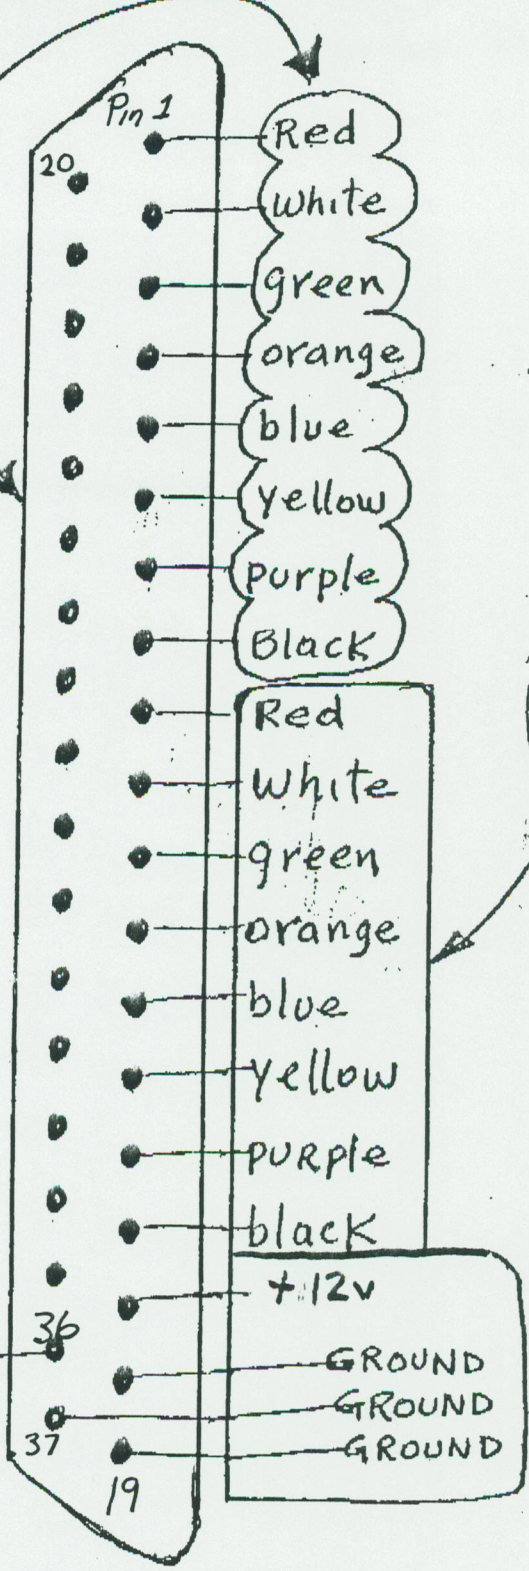 Pin 1
Red
20
White
green
orange
blue
yellow
purple
Black
Red
White
green
orange
blue
yellow
PURPle
black
+ 12v
36
GROUND
GROUND
37
GROUND
19